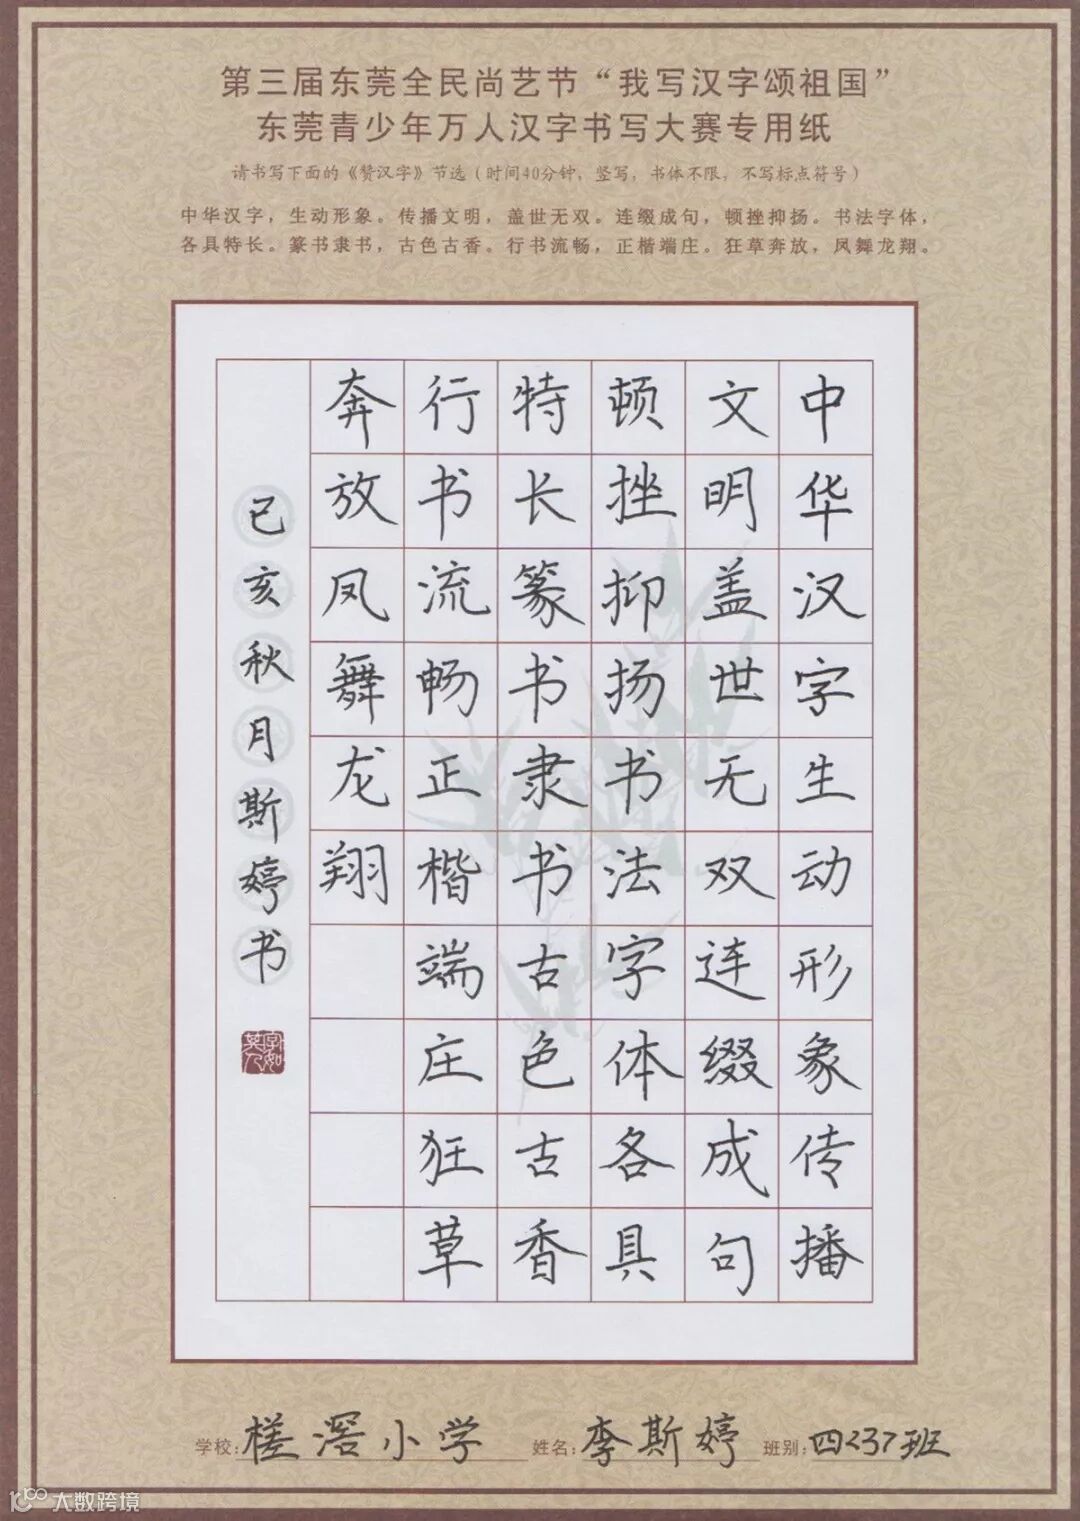 第三届东莞全民尚艺节“我写汉字颂祖国”
东莞青少年万人汉字书写大赛专用纸
请书写下面的《赞汉字》节选(时间40分钟，竖写，书体不限，不写标点符号)
中华汉字，生动形象。传播文明，盖世无双。连缀成句，顿挫抑扬。书法字体，
各具特长。篆书隶书，古色古香。行书流畅，正楷端庄。狂草奔放，凤舞龙翔。
中华汉字生动形象传播
文明盖世无双连缀成句
顿挫抑扬书法字体各具
特长篆书隶书古色古香
行书流畅正楷端庄狂草
奔放凤舞龙翔
己亥秋月斯婷书
字如其人
学校:槎滘小学 姓名:李斯婷 班别:四(3)班
大数跨境